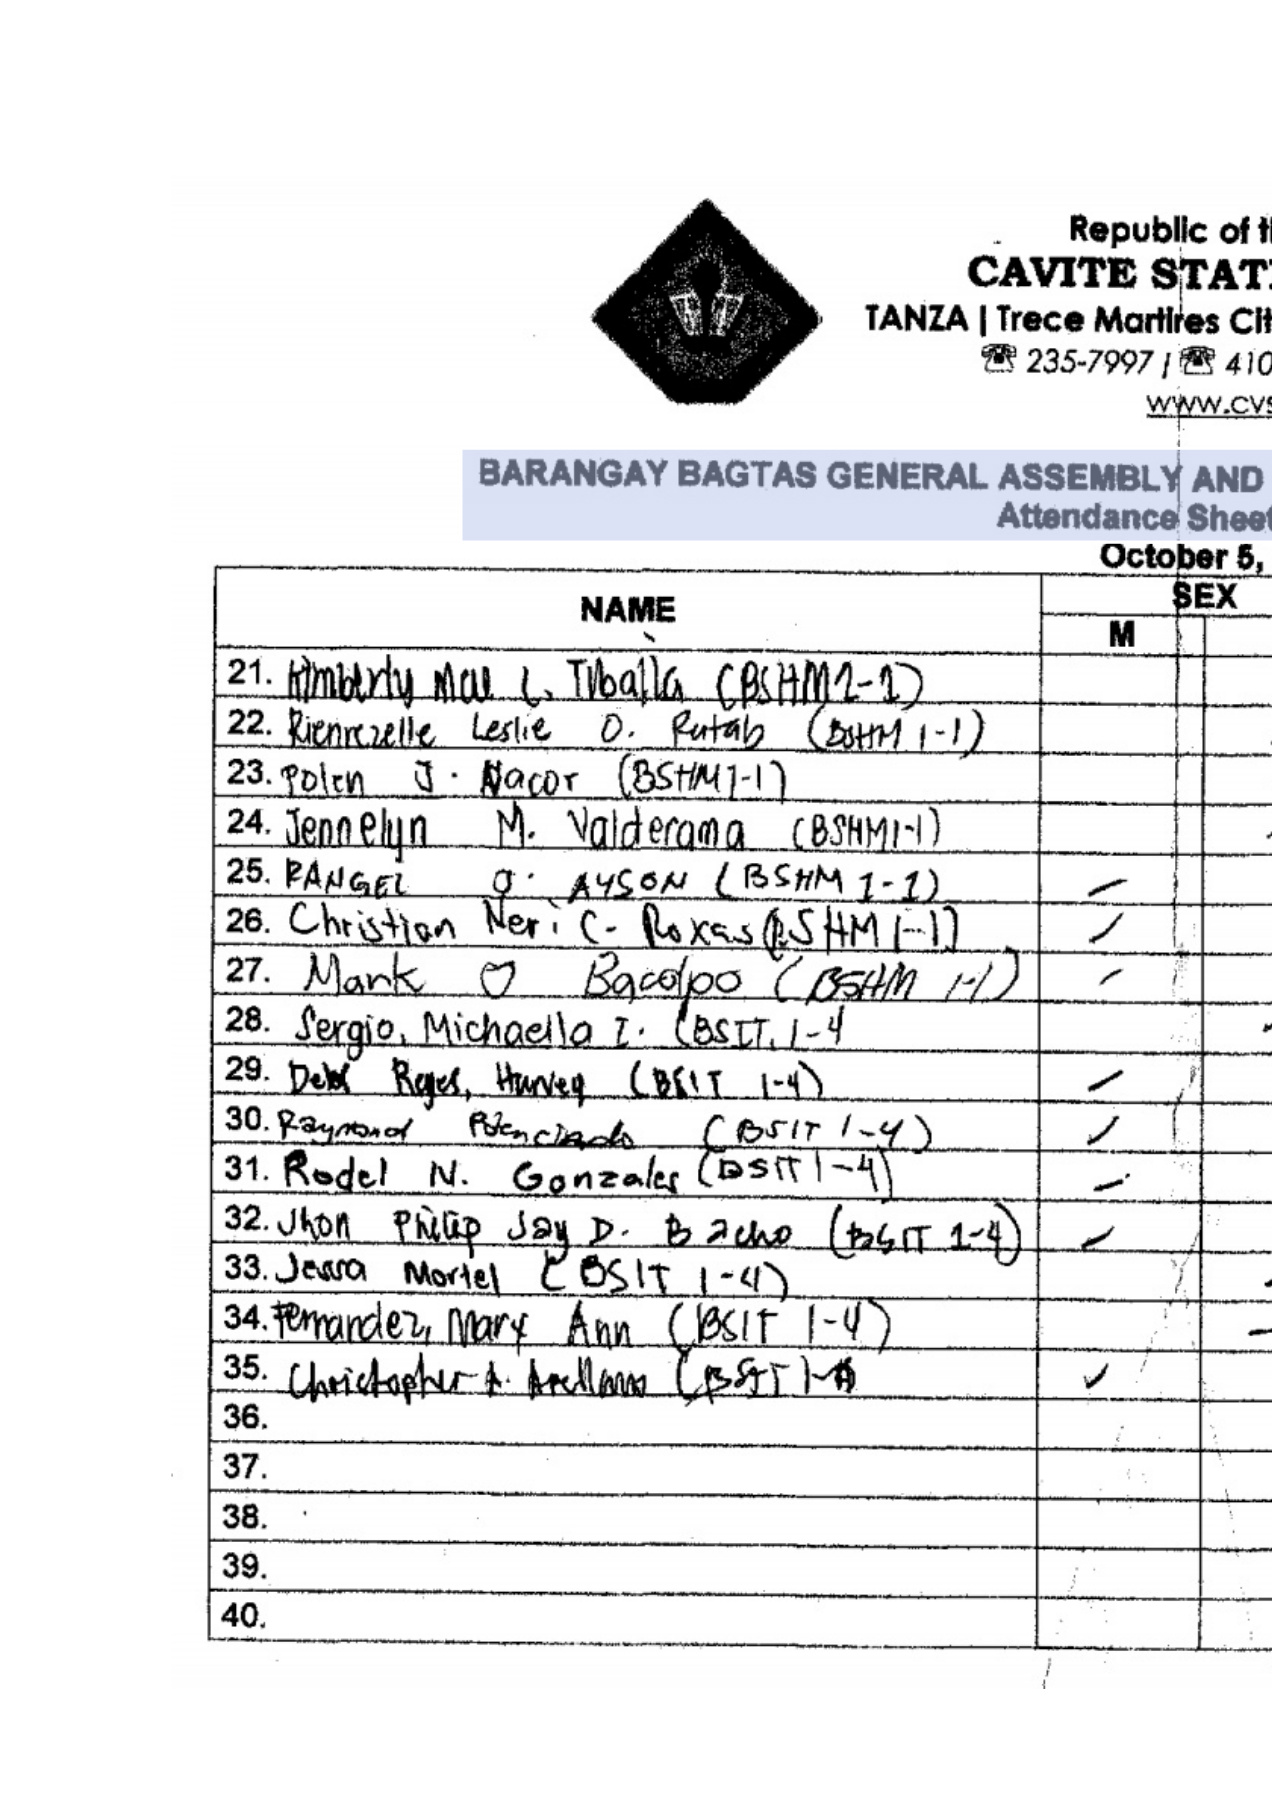 Republic of
CAVITE STAT
TANZA | Trece Martires Cit
☏ 235-7997 / ☏ 410
www.cvs
BARANGAY BAGTAS GENERAL ASSEMBLY AND
Attendance Sheet
October 5,
NAME
SEX
M
21. Kimberly Mae L. Tuballa (BSHM1-1)
22. Rienrezelle Leslie O. Rutab (BSHM 1-1)
23. Polen J. Nacor (BSHM1-1)
24. Jennelyn M. Valderama (BSHM1-1)
25. RANGEL O. AYSON (BSHM 1-1)
26. Christian Neri C. Roxas (BSHM 1-1)
27. Mark Bacolpo (BSHM 1-1)
28. Sergio, Michaella I. (BSIT, 1-4
29. Delos Reyes, Harvey (BSIT 1-4)
30. Raymond Potenciado (BSIT 1-4)
31. Rodel N. Gonzales (BSIT 1-4)
32. Jhon Philip Jay D. Bacho (BSIT 1-4)
33. Jessa Mortel (BSIT 1-4)
34. Fernandez, Mary Ann (BSIT 1-4)
35. Christopher A. Arellano (BSIT 1-4
36.
37.
38.
39.
40.